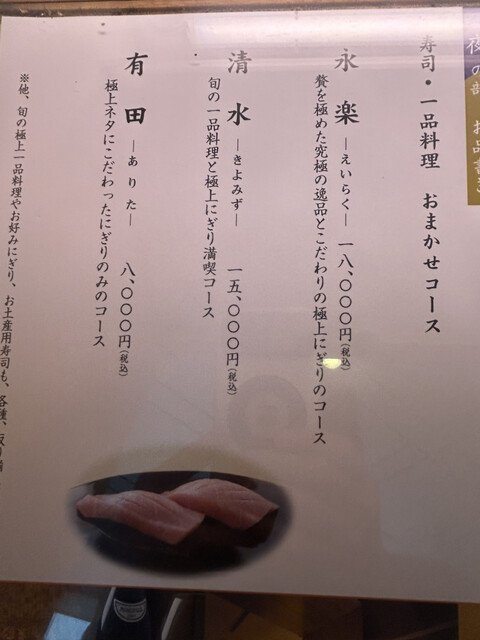 夜の部 お品書き
寿司・一品料理 おまかせコース
永楽 ―えいらく― 一八、〇〇〇円(税込)
贅を極めた究極の逸品とこだわりの極上にぎりのコース
清水 ―きよみず― 一五、〇〇〇円(税込)
旬の一品料理と極上にぎり満喫コース
有田 ―ありた― 八、〇〇〇円(税込)
極上ネタにこだわったにぎりのみのコース
※他、旬の極上一品料理やお好みにぎり、お土産用寿司も、各種、取り揃